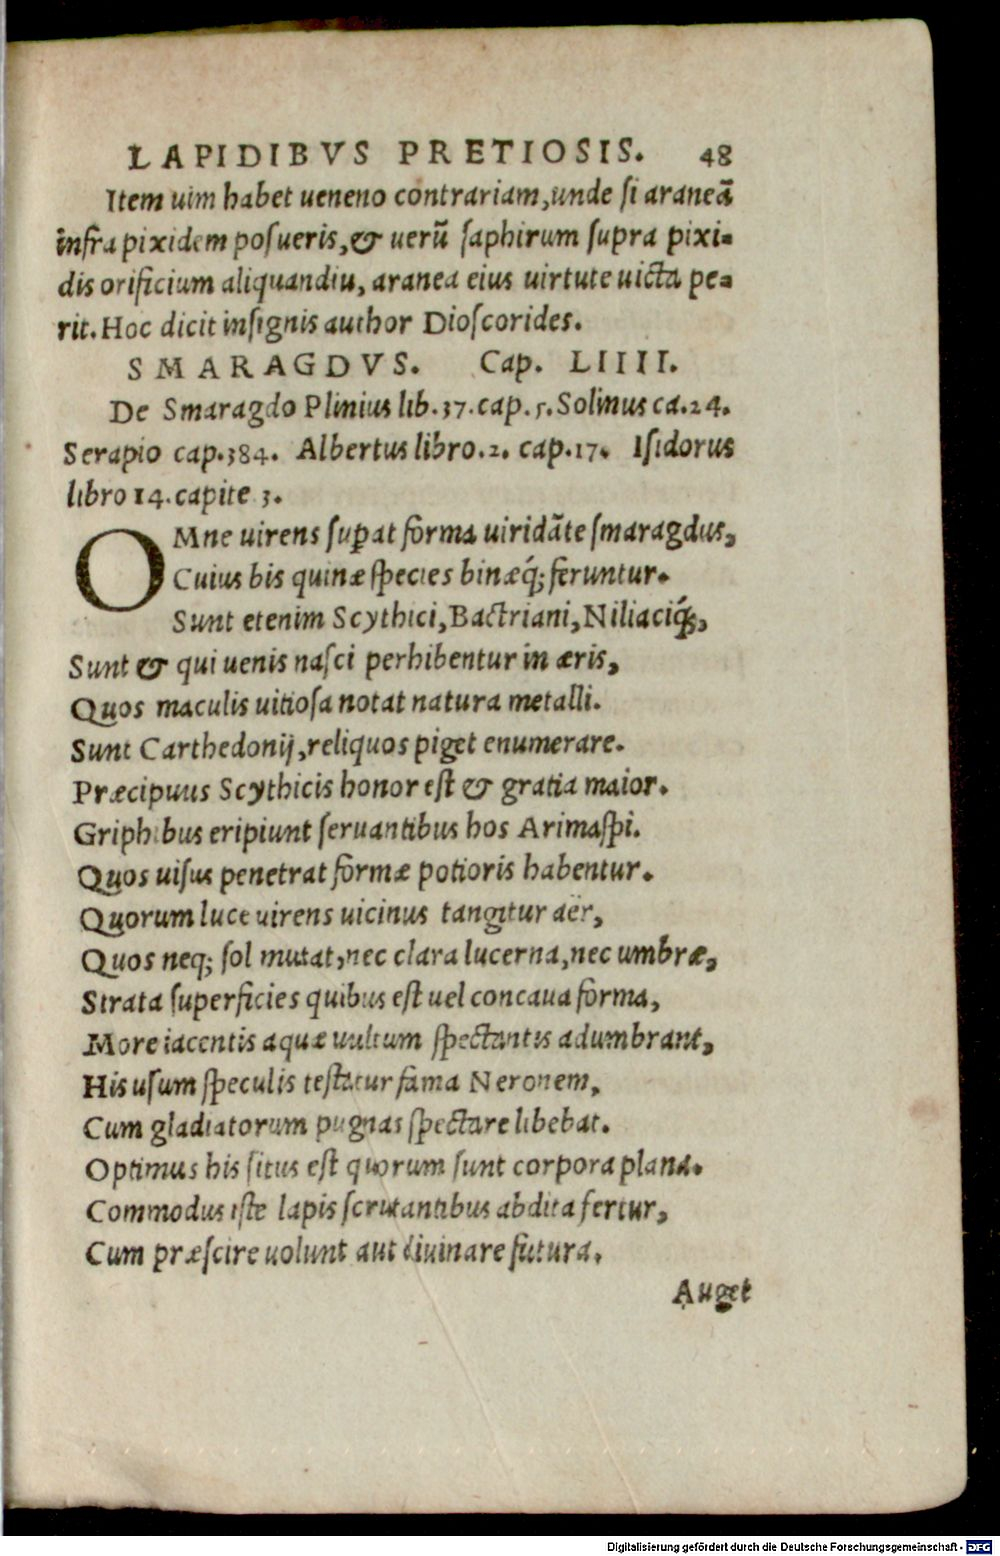 LAPIDIBVS PRETIOSIS. 48
Item uim habet ueneno contrariam, unde si araneā
infra pixidem posueris, & uerū saphirum supra pixi-
dis orificium aliquandiu, aranea eius uirtute uicta pe-
rit. Hoc dicit insignis author Dioscorides.
SMARAGDVS. Cap. LIIII.
De Smaragdo Plinius lib. 37. cap. 5. Solinus ca. 24.
Serapio cap. 384. Albertus libro. 2. cap. 17. Isidorus
libro 14. capite 3.
OMne uirens suꝑat forma uiridāte smaragdus,
Cuius bis quinæ species binæq́; feruntur.
Sunt etenim Scythici, Bactriani, Niliaciq́;,
Sunt & qui uenis nasci perhibentur in æris,
Quos maculis uitiosa notat natura metalli.
Sunt Carthedonij, reliquos piget enumerare.
Præcipuus Scythicis honor est & gratia maior.
Griphibus eripiunt seruantibus hos Arimaspi.
Quos uisus penetrat formæ potioris habentur.
Quorum luce uirens uicinus tangitur aër,
Quos neq; sol mutat, nec clara lucerna, nec umbræ,
Strata superficies quibus est uel concaua forma,
More iacentis aquæ uultum spectantis adumbrant,
His usum speculis testatur fama Neronem,
Cum gladiatorum pugnas spectare libebat.
Optimus his situs est quorum sunt corpora plana.
Commodus iste lapis scrutantibus abdita fertur,
Cum præscire uolunt aut diuinare futura.
Auget
Digitalisierung gefördert durch die Deutsche Forschungsgemeinschaft - DFG